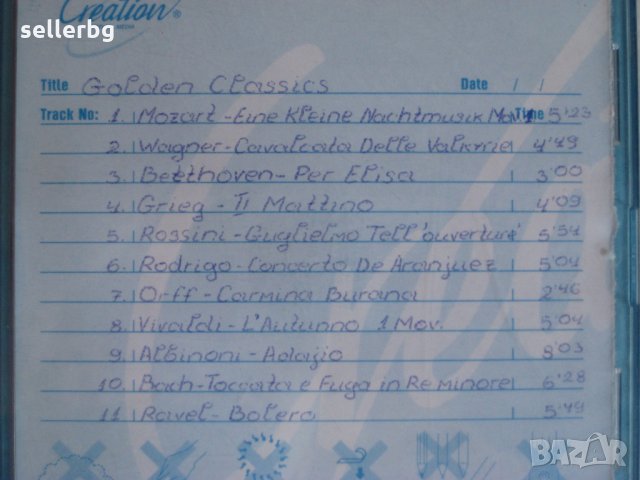 sellerbg
Creation®
Title Golden Classics Date / /
Track No: 1. Mozart - Eine Kleine Nachtmusik Mov. 1 Time 5'23
2. Wagner - Cavalcata Delle Valkirie 4'49
3. Beethoven - Per Elisa 3'00
4. Grieg - Il Mattino 4'09
5. Rossini - Guglielmo Tell'ouverture 5'54
6. Rodrigo - Concerto De Aranjuez 5'04
7. Orff - Carmina Burana 2'46
8. Vivaldi - L'Autunno 1 Mov. 5'04
9. Albinoni - Adagio 8'03
10. Bach - Toccata e Fuga in Re minore 6'28
11. Ravel - Bolero 5'49
BAZAR